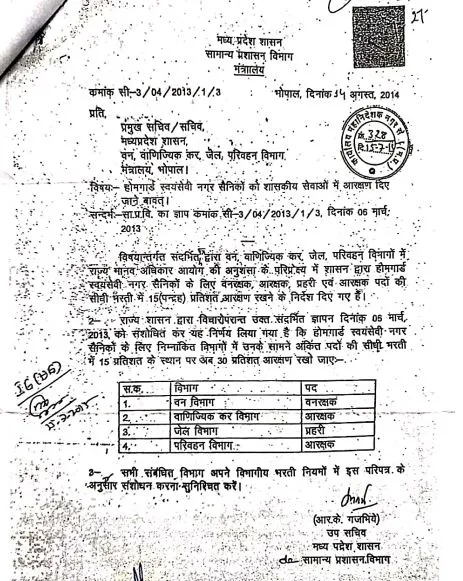 मध्य प्रदेश शासन
सामान्य प्रशासन विभाग
मंत्रालय
क्रमांक सी-3/04/2013/1/3 भोपाल, दिनांक 14 अगस्त, 2014
प्रति,
प्रमुख सचिव/सचिव,
मध्यप्रदेश शासन,
वन, वाणिज्यिक कर, जेल, परिवहन विभाग,
मंत्रालय, भोपाल।
विषयः- होमगार्ड स्वयंसेवी नगर सैनिकों को शासकीय सेवाओं में आरक्षण दिए
जाने बावत्।
सन्दर्भः-सा.प्र.वि. का ज्ञाप क्रमांक सी-3/04/2013/1/3, दिनांक 06 मार्च,
2013
विषयान्तर्गत संदर्भित द्वारा वन, वाणिज्यिक कर, जेल, परिवहन विभागों में
राज्य मानव अधिकार आयोग की अनुशंसा के परिप्रेक्ष्य में शासन द्वारा होमगार्ड
स्वयंसेवी नगर सैनिकों के लिए वनरक्षक, आरक्षक, प्रहरी एवं आरक्षक पदों की
सीधी भरती में 15(पन्द्रह) प्रतिशत आरक्षण रखने के निर्देश दिए गए हैं।
2- राज्य शासन द्वारा विचारोपरान्त उक्त संदर्भित ज्ञापन दिनांक 06 मार्च,
2013 को संशोधित कर यह निर्णय लिया गया है कि होमगार्ड स्वयंसेवी नगर
सैनिकों के लिए निम्नांकित विभागों में उनके सामने अंकित पदों की सीधी भरती
में 15 प्रतिशत के स्थान पर अब 30 प्रतिशत आरक्षण रखा जाएः-
स.क. विभाग पद
1. वन विभाग वनरक्षक
2. वाणिज्यिक कर विभाग आरक्षक
3. जेल विभाग प्रहरी
4. परिवहन विभाग आरक्षक
3- सभी संबंधित विभाग अपने विभागीय भरती नियमों में इस परिपत्र के
अनुसार संशोधन करना सुनिश्चित करें।
(आर.के. गजभिये)
उप सचिव
मध्य प्रदेश शासन
सामान्य प्रशासन विभाग